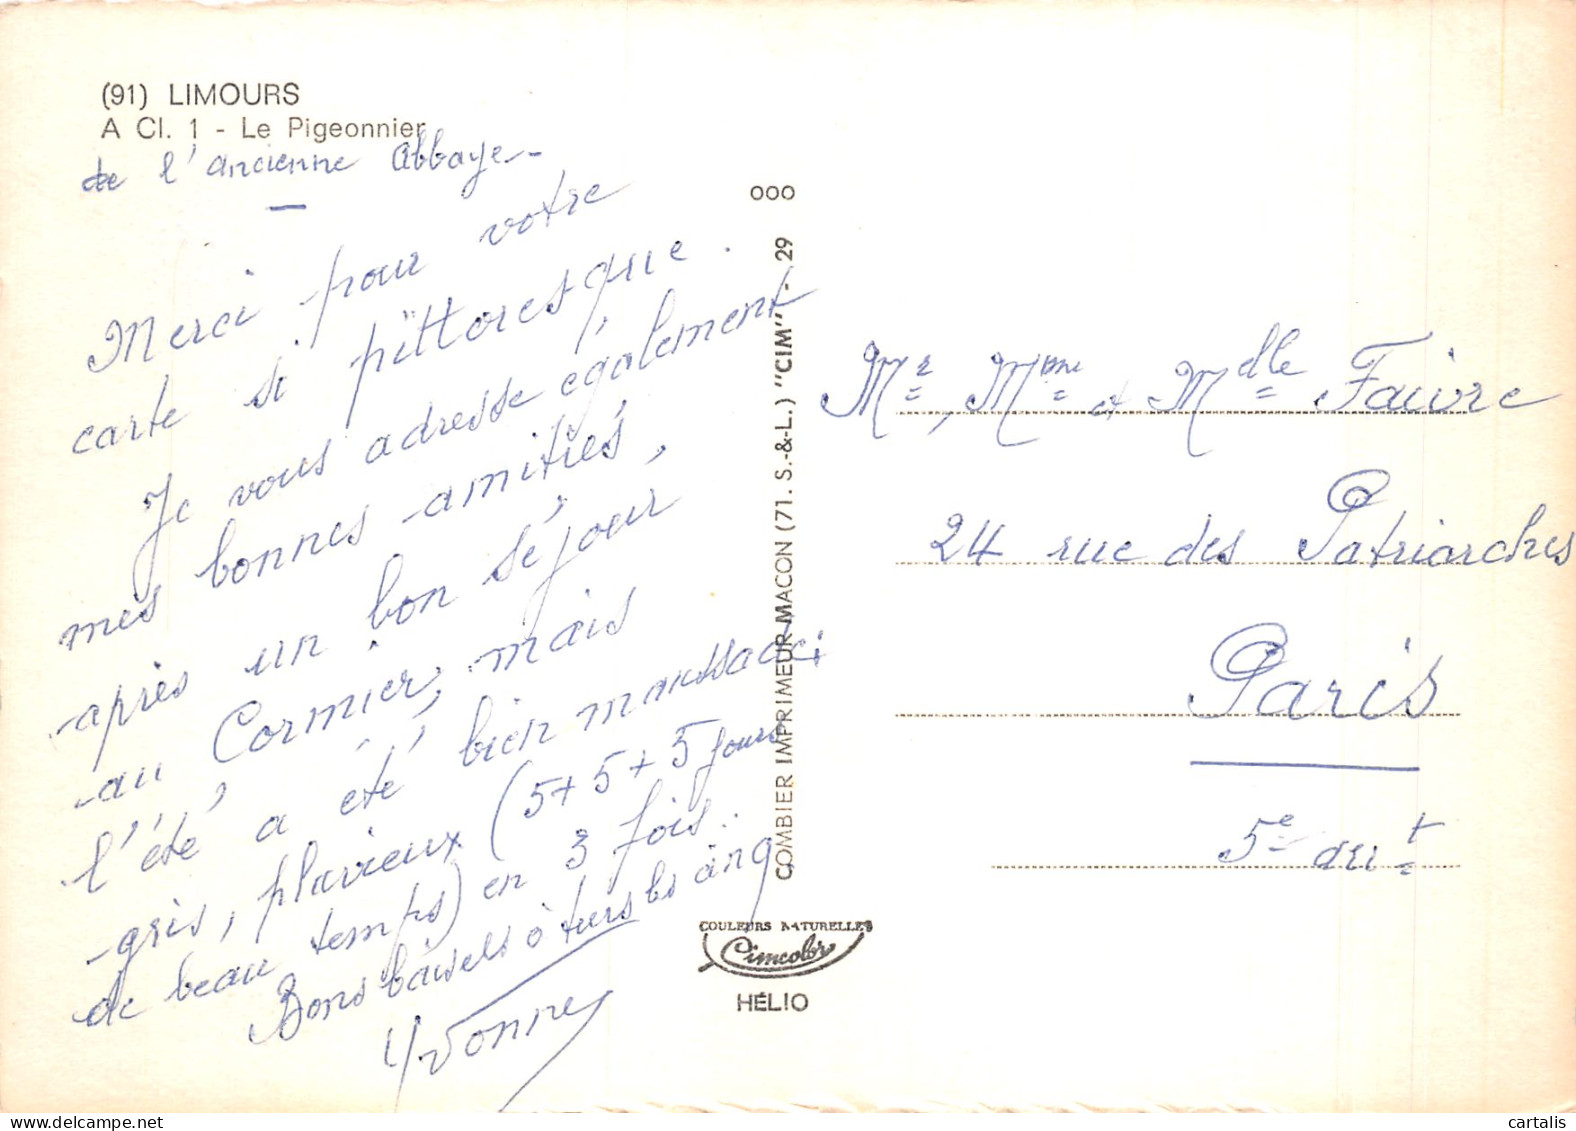 (91) LIMOURS
A Cl. 1 - Le Pigeonnier
de l'ancienne Abbaye -
Merci pour votre
carte si pittoresque.
Je vous adresse également
mes bonnes amitiés,
après un bon séjour,
au Cormier, mais
l'été a été bien maussade:
gris, pluvieux (5+5+5 jours
de beau temps) en 3 fois..
Bons baisers à tous les
Yvonne
COMBIER IMPRIMEUR MACON (71. S.-&-L.) "CIM" - 29
000
COULEURS NATURELLES
Cimcolor
HÉLIO
Mr, Mme et Mdlle Faivre
24 rue des Patriarches
Paris
5e arrt
cartalis